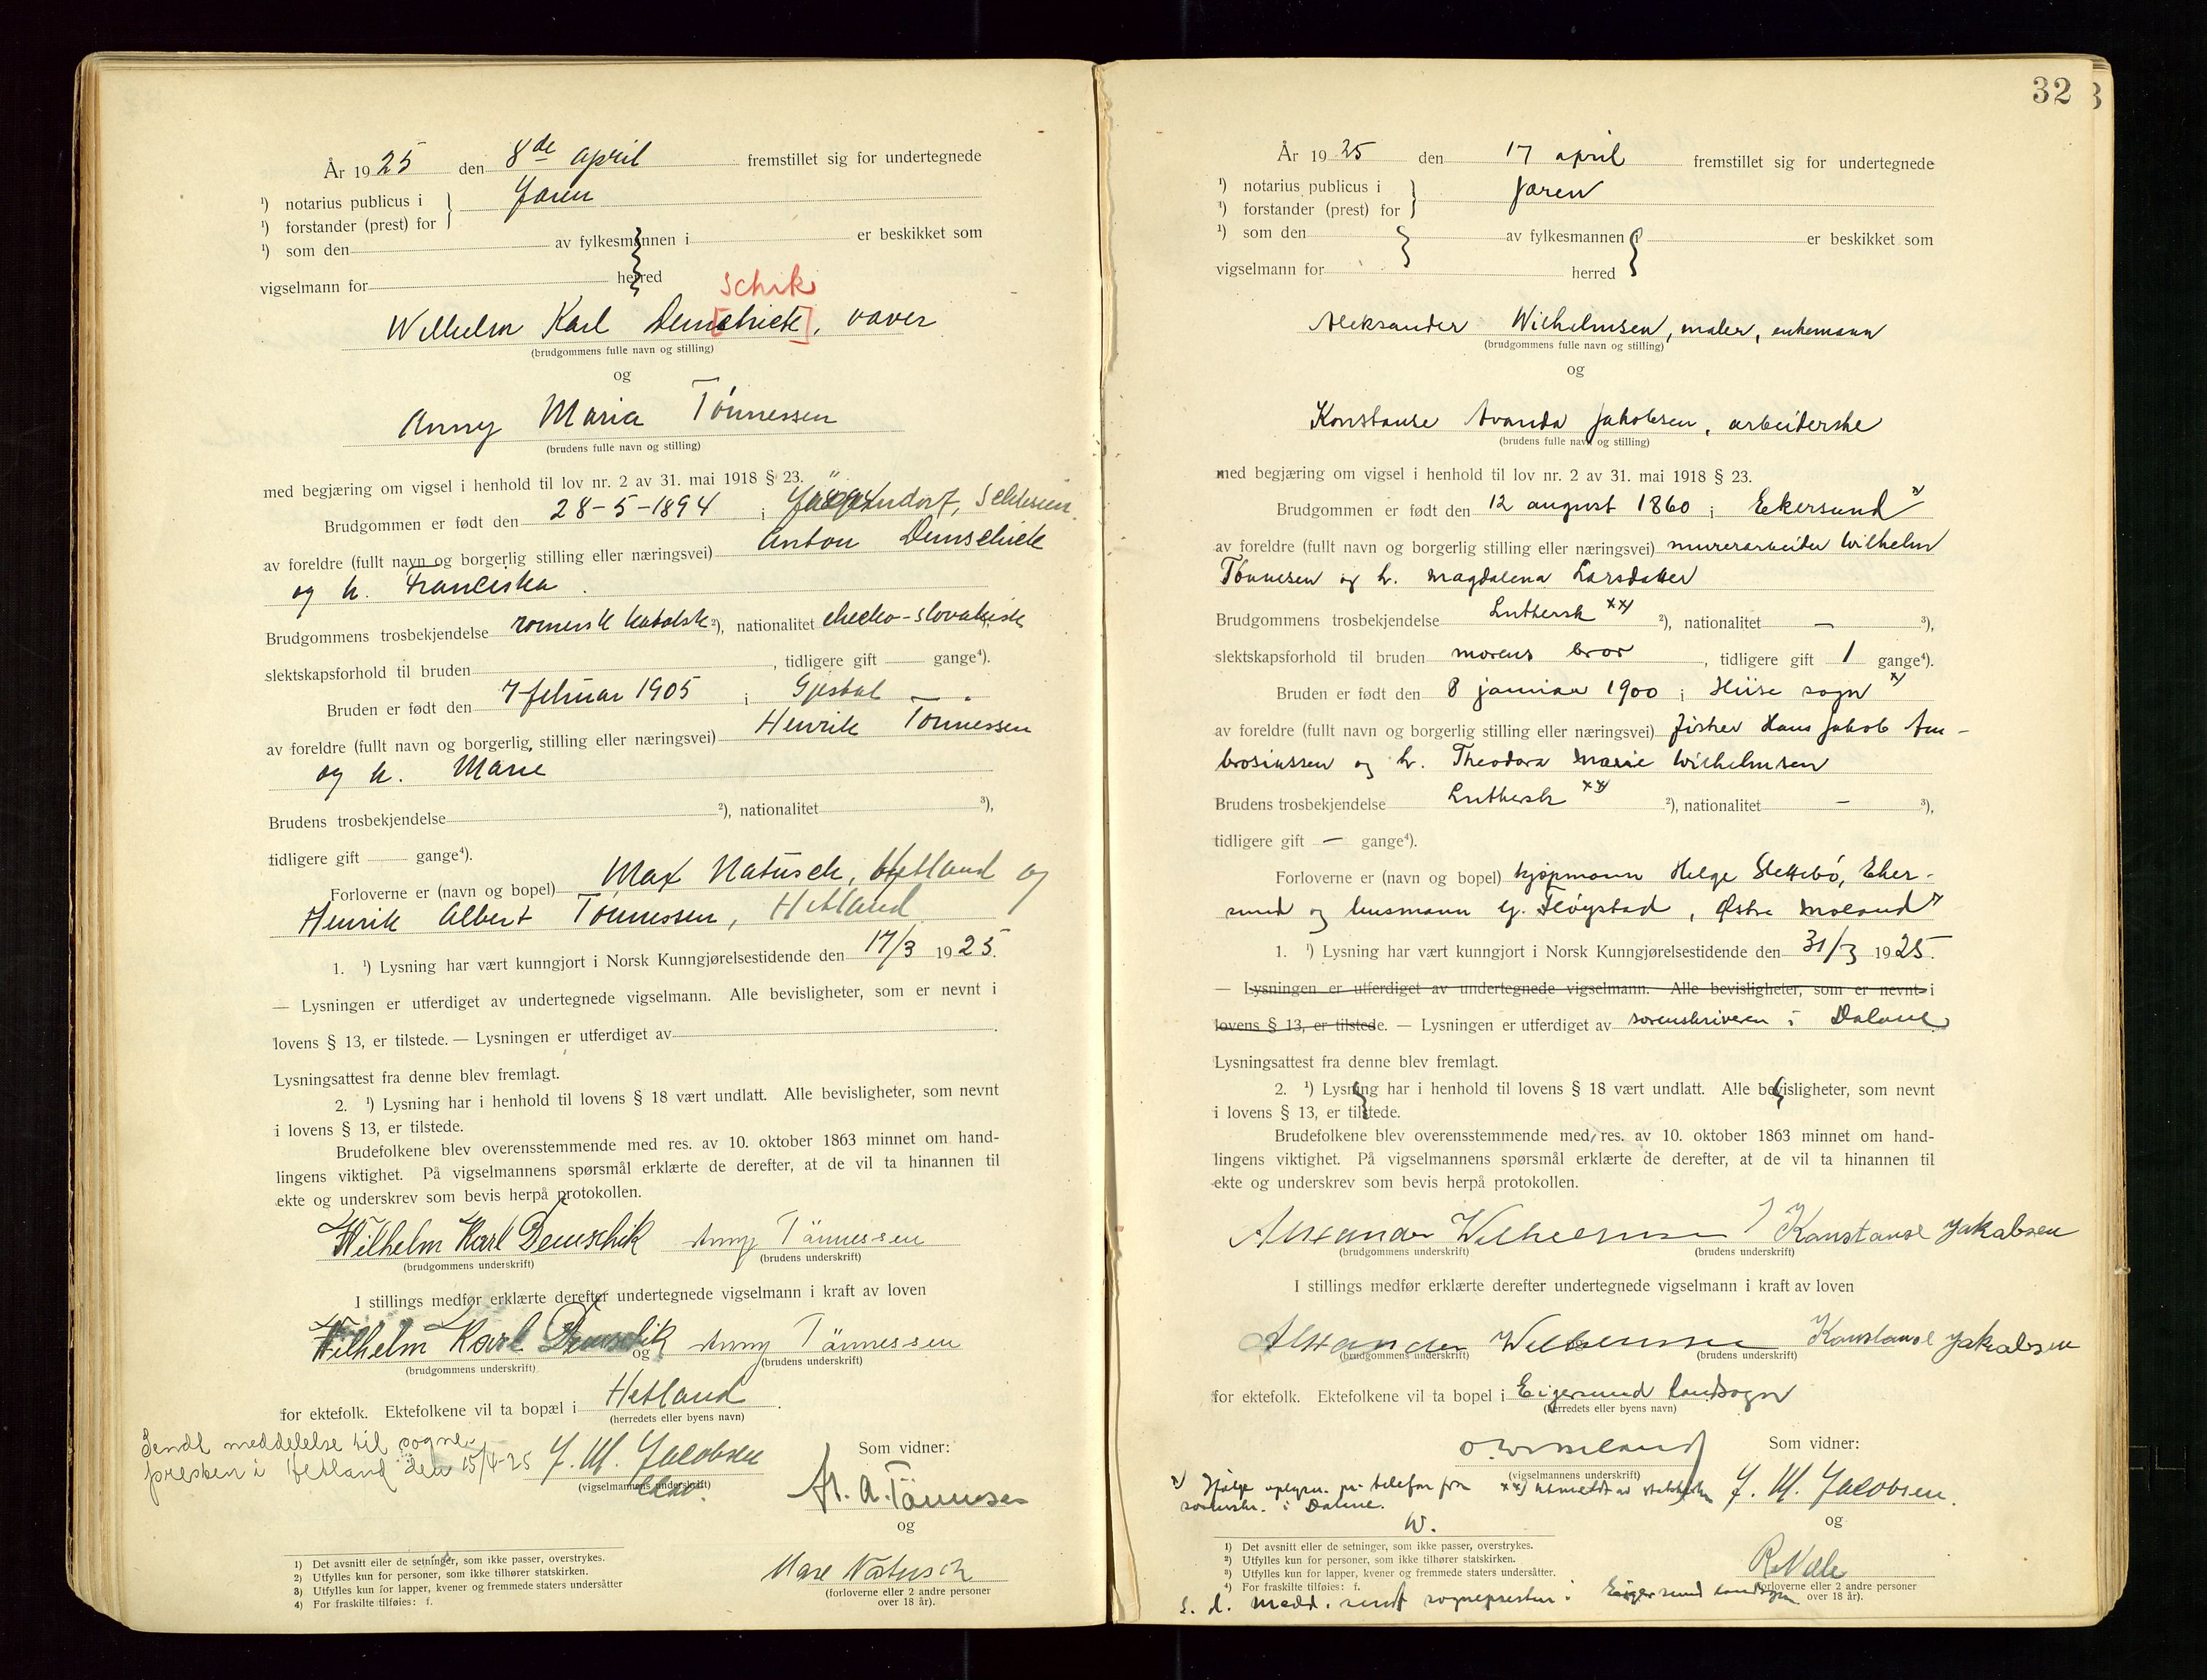 År 1925 den 8de april fremstillet sig for undertegnede
¹) notarius publicus i } Jæren
¹) forstander (prest) for
¹) som den av fylkesmannen i er beskikket som
vigselmann for herred
schik
Wilhelm Karl Dem[chick], væver
(brudgommens fulle navn og stilling)
og
Anny Maria Tönnessen
(brudens fulle navn og stilling)
med begjæring om vigsel i henhold til lov nr. 2 av 31. mai 1918 § 23.
Brudgommen er født den 28-5-1894 i Jägerndorf, Schlesien
av foreldre (fullt navn og borgerlig stilling eller næringsvei) Anton Demschick
og h. Franciska.
Brudgommens trosbekjendelse romersk katolsk ²), nationalitet checko-slovakisk
slektskapsforhold til bruden , tidligere gift gange⁴).
Bruden er født den 7 februar 1905 i Gjesdal —.
av foreldre (fullt navn og borgerlig stilling eller næringsvei) Henrik Tönnessen
og h. Marie
Brudens trosbekjendelse ²), nationalitet ³),
tidligere gift gange⁴).
Forloverne er (navn og bopel) Max Natusch, Hetland og
Henrik Albert Tönnessen, Hetland
1. ¹) Lysning har vært kunngjort i Norsk Kunngjørelsestidende den 17/3 1925.
— Lysningen er utferdiget av undertegnede vigselmann. Alle bevisligheter, som er nevnt i
lovens § 13, er tilstede. — Lysningen er utferdiget av .
Lysningsattest fra denne blev fremlagt.
2. ¹) Lysning har i henhold til lovens § 18 vært undlatt. Alle bevisligheter, som nevnt
i lovens § 13, er tilstede.
Brudefolkene blev overensstemmende med res. av 10. oktober 1863 minnet om hand-
lingens viktighet. På vigselmannens spørsmål erklærte de derefter, at de vil ta hinannen til
ekte og underskrev som bevis herpå protokollen.
Wilhelm Karl Demschik Anny Tännessen
(brudgommens underskrift) (brudens underskrift)
I stillings medfør erklærte derefter undertegnede vigselmann i kraft av loven
Wilhelm Karl Demschik og Anny Tännessen
(brudgommens underskrift) (brudens underskrift)
for ektefolk. Ektefolkene vil ta bopæl i Hetland.
(herredets eller byens navn)
Sendt meddelelse til sogne-
presten i Hetland den 15/4-25
J. M. Jacobsen
(vigselmannens underskrift)
Som vidner:
H. A. Tönnessen
og
Marx Natusch
(forloverne eller 2 andre personer
over 18 år).
1) Det avsnitt eller de setninger, som ikke passer, overstrykes.
2) Utfylles kun for personer, som ikke tilhører statskirken.
3) Utfylles kun for lapper, kvener og fremmede staters undersåtter
4) For fraskilte tilføies: f.
32
År 1925 den 17 april fremstillet sig for undertegnede
¹) notarius publicus i } Jæren
¹) forstander (prest) for
¹) som den av fylkesmannen i er beskikket som
vigselmann for herred
Aleksander Wilhelmsen, maler, enkemann
(brudgommens fulle navn og stilling)
og
Konstanse Avanda Jakobsen, arbeiderske
(brudens fulle navn og stilling)
med begjæring om vigsel i henhold til lov nr. 2 av 31. mai 1918 § 23.
Brudgommen er født den 12 august 1860 i Ekersund x)
av foreldre (fullt navn og borgerlig stilling eller næringsvei) murerarbeider Wilhelm
Tönnesen og h. Magdalena Larsdatter
Brudgommens trosbekjendelse Luthersk xx) ²), nationalitet — ³),
slektskapsforhold til bruden morens bror, tidligere gift 1 gange⁴).
Bruden er født den 8 januar 1900 i Hiise sogn x)
av foreldre (fullt navn og borgerlig stilling eller næringsvei) fisker Hans Jakob Am-
brosiussen og h. Theodora Marie Wilhelmsen
Brudens trosbekjendelse Luthersk xx) ²), nationalitet — ³),
tidligere gift — gange⁴).
Forloverne er (navn og bopel) kjøpmann Helge Slettebö, Eker-
sund og husmann G. Fløystad, Østre Moland x)
1. ¹) Lysning har vært kunngjort i Norsk Kunngjørelsestidende den 31/3 1925.
— Lysningen er utferdiget av undertegnede vigselmann. Alle bevisligheter, som er nevnt i
lovens § 13, er tilstede. — Lysningen er utferdiget av sorenskriveren i Dalane
Lysningsattest fra denne blev fremlagt.
2. ¹) Lysning har i henhold til lovens § 18 vært undlatt. Alle bevisligheter, som nevnt
i lovens § 13, er tilstede.
Brudefolkene blev overensstemmende med res. av 10. oktober 1863 minnet om hand-
lingens viktighet. På vigselmannens spørsmål erklærte de derefter, at de vil ta hinannen til
ekte og underskrev som bevis herpå protokollen.
Alexander Wilhelmsen Konstanse Jakabsen
(brudgommens underskrift) (brudens underskrift)
I stillings medfør erklærte derefter undertegnede vigselmann i kraft av loven
Alexander Wilhelmsen Konstanse Jakabsen
(brudgommens underskrift) (brudens underskrift)
for ektefolk. Ektefolkene vil ta bopel i Eigersund landsogn
(herredets eller byens navn)
(vigselmannens underskrift)
Som vidner:
x) Ifølge oplysn. pr. telefon fra
sorenskr. i Dalane.
xx) utmeldt av statskirken
W.
J. M. Jacobsen.
og
(forloverne eller 2 andre personer
over 18 år).
1) Det avsnitt eller de setninger, som ikke passer, overstrykes.
2) Utfylles kun for personer, som ikke tilhører statskirken.
3) Utfylles kun for lapper, kvener og fremmede staters undersåtter.
4) For fraskilte tilføies: f.
S. d. medd. sendt sognepresten i Eigersund landsogn